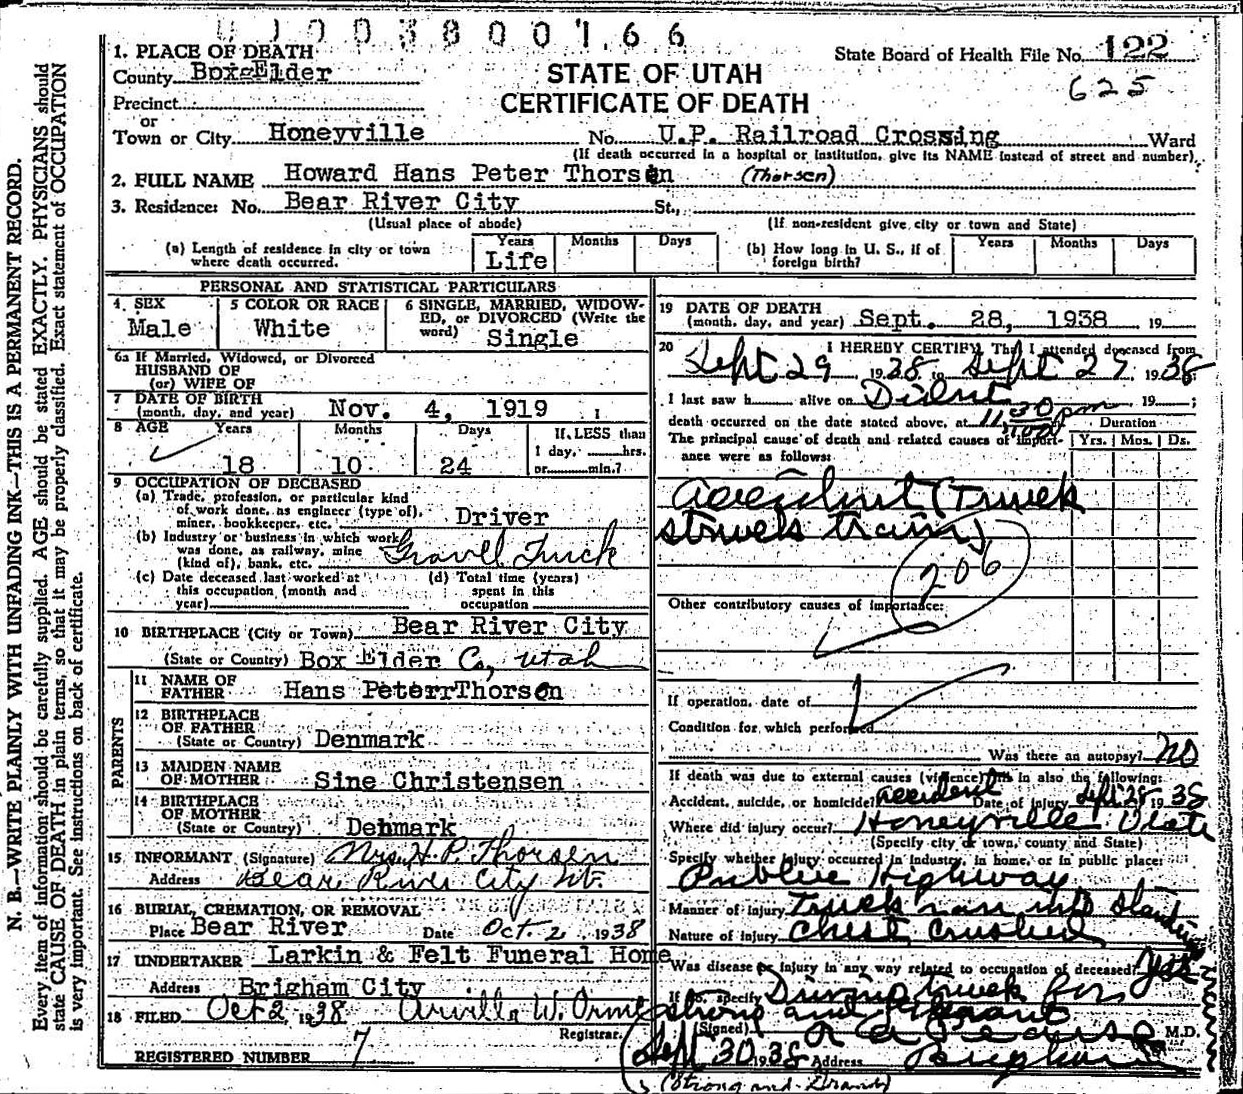 1. PLACE OF DEATH
County Box Elder
Precinct
or
Town or City Honeyville No. U.P. Railroad Crossing Ward
(If death occurred in a hospital or institution, give its NAME instead of street and number)
State Board of Health File No. 122
625
STATE OF UTAH
CERTIFICATE OF DEATH
2. FULL NAME Howard Hans Peter Thorsen (Thorsen)
3. Residence: No. Bear River City St.,
(Usual place of abode) (If non-resident give city or town and State)
(a) Length of residence in city or town where death occurred. Years Life Months Days
(b) How long in U. S., if of foreign birth? Years Months Days
PERSONAL AND STATISTICAL PARTICULARS
4. SEX Male
5 COLOR OR RACE White
6 SINGLE, MARRIED, WIDOWED, OR DIVORCED (Write the word) Single
6a If Married, Widowed, or Divorced
HUSBAND OF
(or) WIFE OF
7 DATE OF BIRTH
(month, day, and year) Nov. 4, 1919
8 AGE Years 18 Months 10 Days 24 If LESS than 1 day, hrs. or min.?
9 OCCUPATION OF DECEASED
(a) Trade, profession, or particular kind
of work done, as engineer (type of),
miner, bookkeeper, etc. Driver
(b) Industry or business in which work
was done, as railway, mine
(kind of), bank, etc. Gravel Truck
(c) Date deceased last worked at this occupation (month and year)
(d) Total time (years) spent in this occupation
10 BIRTHPLACE (City or Town) Bear River City
(State or Country) Box Elder Co, Utah
PARENTS
11 NAME OF
FATHER Hans Peterr Thorsen
12 BIRTHPLACE
OF FATHER
(State or Country) Denmark
13 MAIDEN NAME
OF MOTHER Sine Christensen
14 BIRTHPLACE
OF MOTHER
(State or Country) Denmark
15 INFORMANT (Signature) Mrs. H. P. Thorsen
Address Bear River City Ut.
16 BURIAL, CREMATION, OR REMOVAL
Place Bear River Date Oct. 2, 1938
17 UNDERTAKER Larkin & Felt Funeral Home
Address Brigham City
18 FILED Oct 2, 1938 W. Orme
Registrar.
REGISTERED NUMBER 7
19 DATE OF DEATH
(month, day, and year) Sept. 28, 1938 19
20 I HEREBY CERTIFY, That I attended deceased from
Sept 29 1938 to Sept 29, 1938
I last saw h alive on 19 ;
death occurred on the date stated above, at 11 30 pm
The principal cause of death and related causes of importance were as follows:
Duration
Yrs. Mos. Ds.
accident (Truck
struck train)
206
Other contributory causes of importance:
If operation, date of
Condition for which performed
Was there an autopsy? no
If death was due to external causes (violence) fill in also the following:
Accident, suicide, or homicide? accident Date of injury Sept 28 1938
Where did injury occur? Honeyville
(Specify city or town, county and State)
Specify whether injury occurred in industry, in home, or in public place:
Public Highway
Manner of injury Truck ran into
Nature of injury Chest crushed
Was disease or injury in any way related to occupation of deceased? Yes
If so, specify Driving truck for
Strong and
(Signed) M.D.
Sept 30 1938 Address Brigham
(Strong and )
N. B.—WRITE PLAINLY WITH UNFADING INK—THIS IS A PERMANENT RECORD.
Every item of information should be carefully supplied. AGE should be stated EXACTLY. PHYSICIANS should
state CAUSE OF DEATH in plain terms, so that it may be properly classified. Exact statement of OCCUPATION
is very important. See instructions on back of certificate.